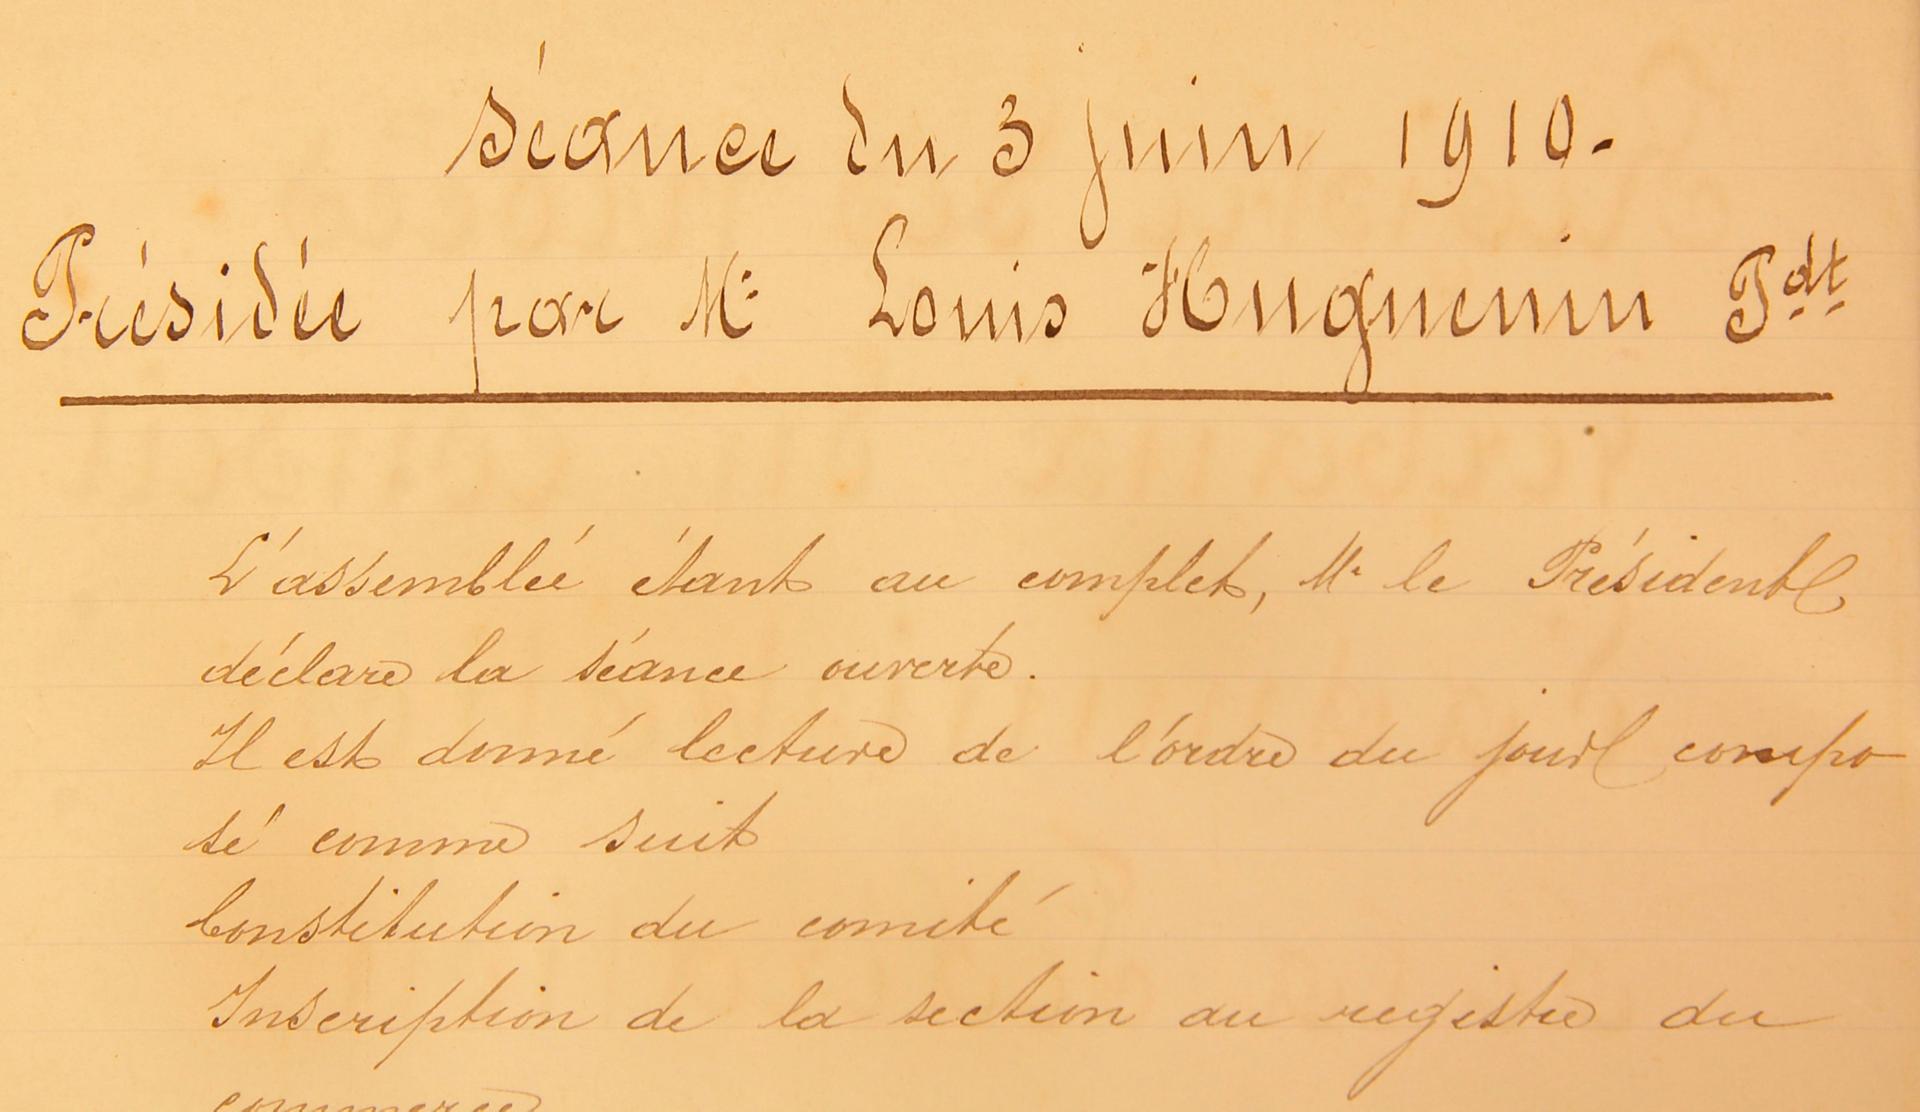 Séance du 3 juin 1910.
Présidée par Mr Louis Huguenin Pdt
L'assemblée étant au complet, Mr le Président
déclare la séance ouverte.
Il est donné lecture de l'ordre du jour compo
sé comme suit
Constitution du comité
Inscription de la section au registre du
commerce